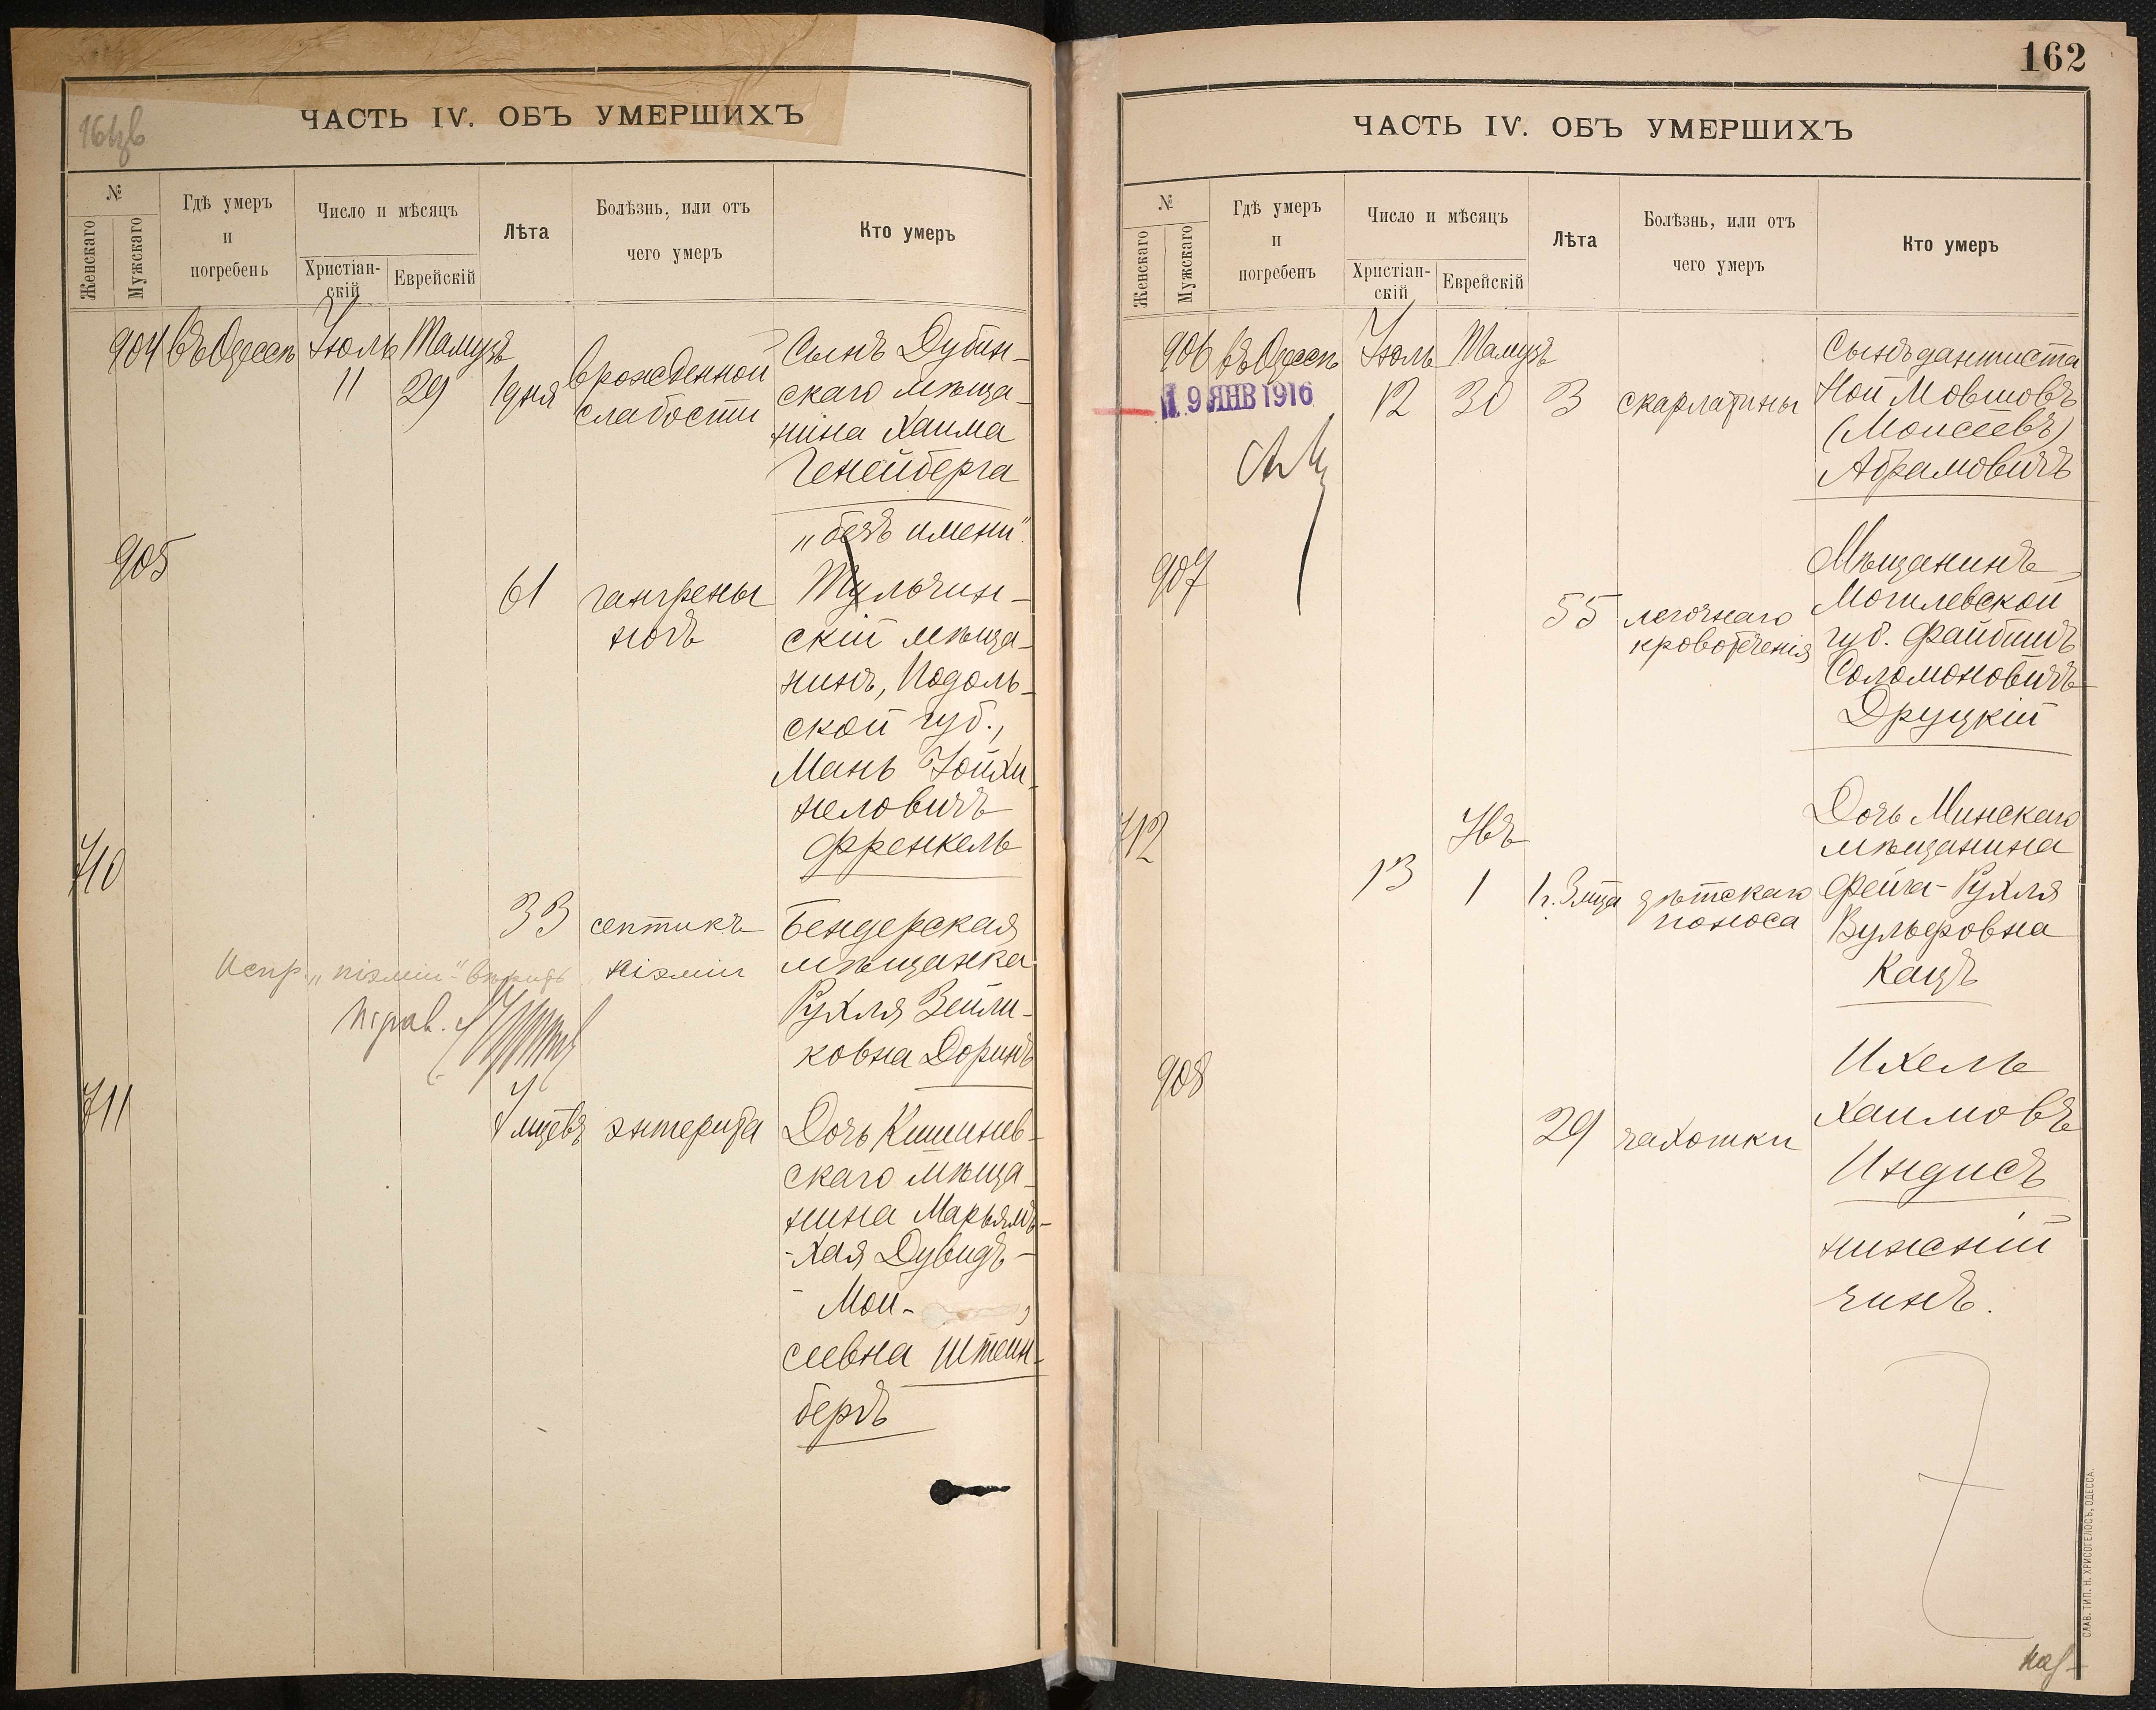 ЧАСТЬ IV. ОБЪ УМЕРШИХЪ
№
Женскаго
Мужскаго
Гдѣ умеръ
и
погребенъ
Число и мѣсяцъ
Христіан-
скій
Еврейскій
Лѣта
Болѣзнь, или отъ
чего умеръ
Кто умеръ
904 въ Одессѣ Іюль Тамузъ
11 29 1 дня
врожденной
слабости
Сынъ Дубин-
скаго мѣща-
нина Хаима
Генейберга
„безъ имени".
905
61 гангрены
ногъ
Тульчин-
скій мѣща-
нинъ, Подоль-
ской губ.,
Мань Іойхи-
неловичъ
Френкель
710
33 септикъ
піэміи
Бендерская
мѣщанка
Рухля Зейли-
ковна Доринъ
Испр. „піэміи" вѣрить
711
мцевъ энтерита
Дочь Кишинев-
скаго мѣща-
нина Марьямъ-
-Хая Дувидъ-
- Мои-
сеевна Штейн-
бергъ
162
ЧАСТЬ IV. ОБЪ УМЕРШИХЪ
№
Женскаго
Мужскаго
Гдѣ умеръ
и
погребенъ
Число и мѣсяцъ
Христіан-
скій
Еврейскій
Лѣта
Болѣзнь, или отъ
чего умеръ
Кто умеръ
906 въ Одессѣ Іюль Тамузъ
19 ЯНВ 1916
12 30 3 скарлатины
Сынъ дантиста
Ной Мовшовъ
(Моисеевъ)
Абрамовичъ
907
55 легочнаго
кровотеченія
Мѣщанинъ
Могилевской
губ. Файбишъ
Соломоновичъ
Друцкій
712
Увъ
13 1 1 г. 3 мца дѣтскаго
поноса
Дочь Минскаго
мѣщанина
Фейга-Рухля
Вульфовна
Кацъ
908
29 чахотки
Ихель
Хаимовъ
Индисъ
нижній
чинъ.
СЛАВ. ТИП. Н. ХРИСОГЕЛОСЪ, ОДЕССА.